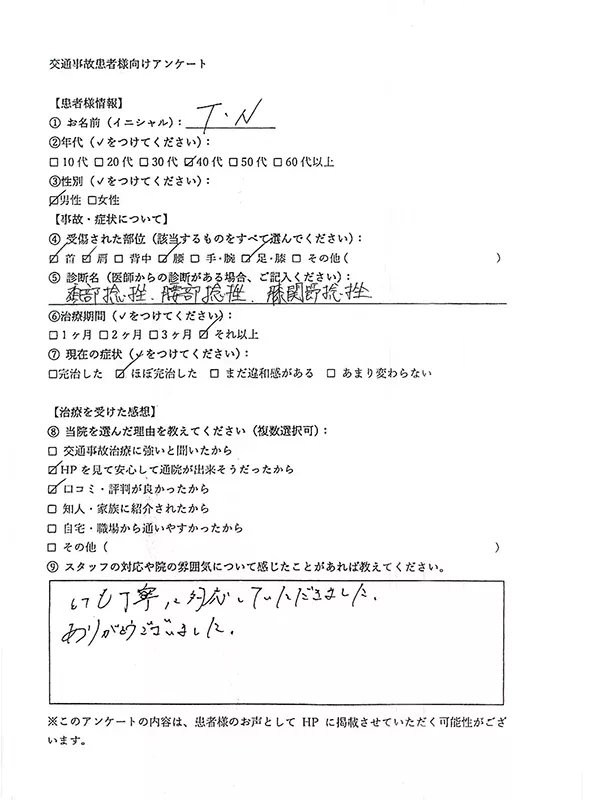 交通事故患者様向けアンケート
【患者様情報】
① お名前（イニシャル）： T・N
②年代（✓をつけてください）：
□10代 □20代 □30代 ☑40代 □50代 □60代以上
③性別（✓をつけてください）：
☑男性 □女性
【事故・症状について】
④ 受傷された部位（該当するものをすべて選んでください）：
☑ 首 ☑ 肩 □ 背中 ☑ 腰 □ 手・腕 ☑ 足・膝 □ その他（ ）
⑤ 診断名（医師からの診断がある場合、ご記入ください）：
頚部捻挫、腰部捻挫、膝関節捻挫
⑥治療期間（✓をつけてください）：
□1ヶ月 □2ヶ月 □3ヶ月 ☑ それ以上
⑦ 現在の症状（✓をつけてください）：
□完治した ☑ ほぼ完治した □ まだ違和感がある □ あまり変わらない
【治療を受けた感想】
⑧ 当院を選んだ理由を教えてください（複数選択可）：
□ 交通事故治療に強いと聞いたから
☑HPを見て安心して通院が出来そうだったから
☑ 口コミ・評判が良かったから
□ 知人・家族に紹介されたから
□ 自宅・職場から通いやすかったから
□ その他（ ）
⑨ スタッフの対応や院の雰囲気について感じたことがあれば教えてください。
とても丁寧に対応していただきました。
ありがとうございました。
※このアンケートの内容は、患者様のお声として HP に掲載させていただく可能性がござ
います。